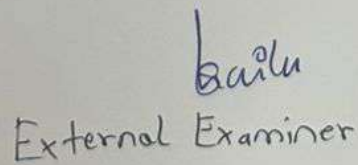 bailu
External Examiner